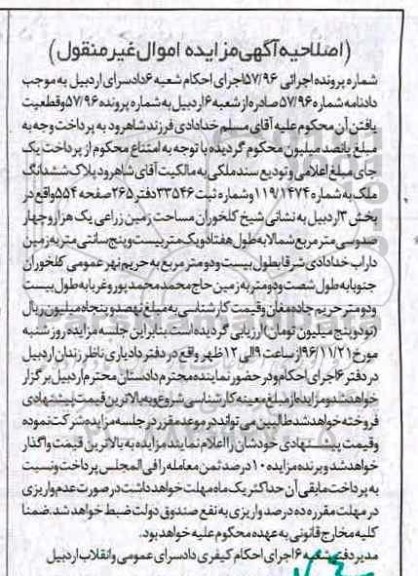 (اصلاحیه آگهی مزایده اموال غیر منقول)
شماره پرونده اجرائی ۵۷/۹۶اجرای احکام شعبه ۶دادسرای اردبیل به موجب
دادنامه شماره ۵۷/۹۶ صادره از شعبه ۶اردبیل به شماره پرونده ۵۷/۹۶وقطعیت
یافتن آن محکوم علیه آقای مسلم خدادادی فرزند شاهرود به پرداخت وجه به
مبلغ پانصد میلیون محکوم گردیده با توجه به امتناع محکوم از پرداخت یک
جای مبلغ اعلامی و تودیع سند ملکی به مالکیت آقای شاهرود پلاک ششدانگ
ملک به شماره ۱۱۹/۱۴۷۴ وشماره ثبت ۳۳۵۴۶دفتر ۲۶۵صفحه ۵۵۴واقع در
بخش ۳اردبیل به نشانی شیخ کلخوران مساحت زمین زراعی یک هزار و چهار
صد و سی متر مربع شمالا به طول هفتادو یک متر بیست و پنج سانتی متر به زمین
داراب خدادادی شرقا بطول بیست و دو متر مربع به حریم نهر عمومی کلخوران
جنوبا به طول شصت و دومتر به زمین حاج محمد محمد پور و غربا به طول بیست
ودو متر حریم جاده مغان و قیمت کارشناسی به مبلغ نهصد و پنجاه میلیون ریال
(نود و پنج میلیون تومان) ارزیابی گردیده است. بنابر این جلسه مزایده روز شنبه
مورخ ۹۶/۱۱/۲۱از ساعت ۹الی ۱۲ظهر واقع در دفتر دادیاری ناظر زندان اردبیل
در دفتر ۶اجرای احکام ودر حضور نماینده محترم دادستان محترم اردبیل برگزار
خواهد شد و مزایده از مبلغ معینه کارشناسی شروع و به بالاترین قیمت پیشنهادی
فروخته خواهد شد طالبین می تواند در موعد مقرر در جلسه مزایده شرکت نموده
وقیمت پیشنهادی خودشان را اعلام نمایند مزایده به بالاترین قیمت واگذار
خواهد شد و برنده مزایده ۱۰درصد ثمن معامله را فی المجلس پرداخت ونسبت
به پرداخت مابقی آن حداکثر یک ماه مهلت خواهد داشت در صورت عدم واریزی
در مهلت مقرر ده درصد واریزی به نفع صندوق دولت ضبط خواهد شد.ضمنا
کلیه مخارج قانونی به عهده محکوم علیه خواهد بود.
مدیر دفتر شعبه ۶اجرای احکام کیفری دادسرای عمومی وانقلاب اردبیل